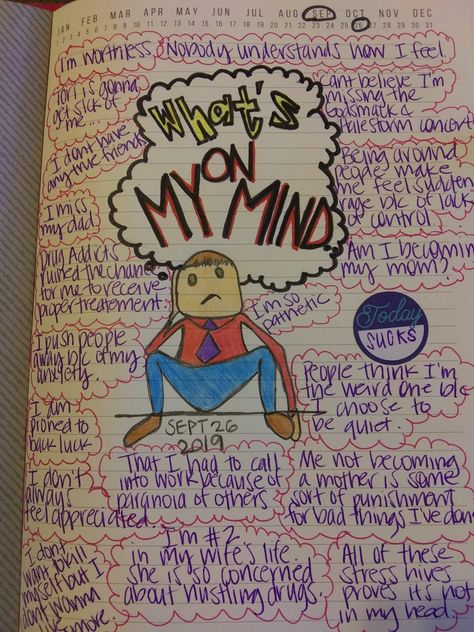 JAN FEB MAR APR MAY JUN JUL AUG SEP OCT NOV DEC
1 2 3 4 5 6 7 8 9 10 11 12 13 14 15 16 17 18 19 20 21 22 23 24 25 26 27 28 29 30 31
I'm worthless.
Nobody understands how I feel.
Tori is gonna
get sick of
me...
What's
ON
MY MIND...
Cant believe I'm
missing the
Godsmack &
Halestorm concert
I don't have
any true friends
Being around
people make
me feel sudden
rage b/c of lack
of control.
I miss
my dad
Drug Addicts
ruined the chance
for me to receive
proper treatement.
Am I becoming
my mom?
I'm so
pathetic
Today
SUCKS
I push people
away b/c of my
anxiety.
People think I'm
the weird one b/c
I choose to
be quiet.
I am
proned to
back luck
SEPT 26
2019
I don't
always
feel appreciated
That I had to call
into work because of
paranoia of others
Me not becoming
a mother is some
sort of punishment
for bad things I've done
I don't
want to kill
myself but I
dont wanna
live more.
I'm #2
in my wife's life.
She is so concerned
about hustling drugs.
All of these
stress hives
proves its not
in my head.